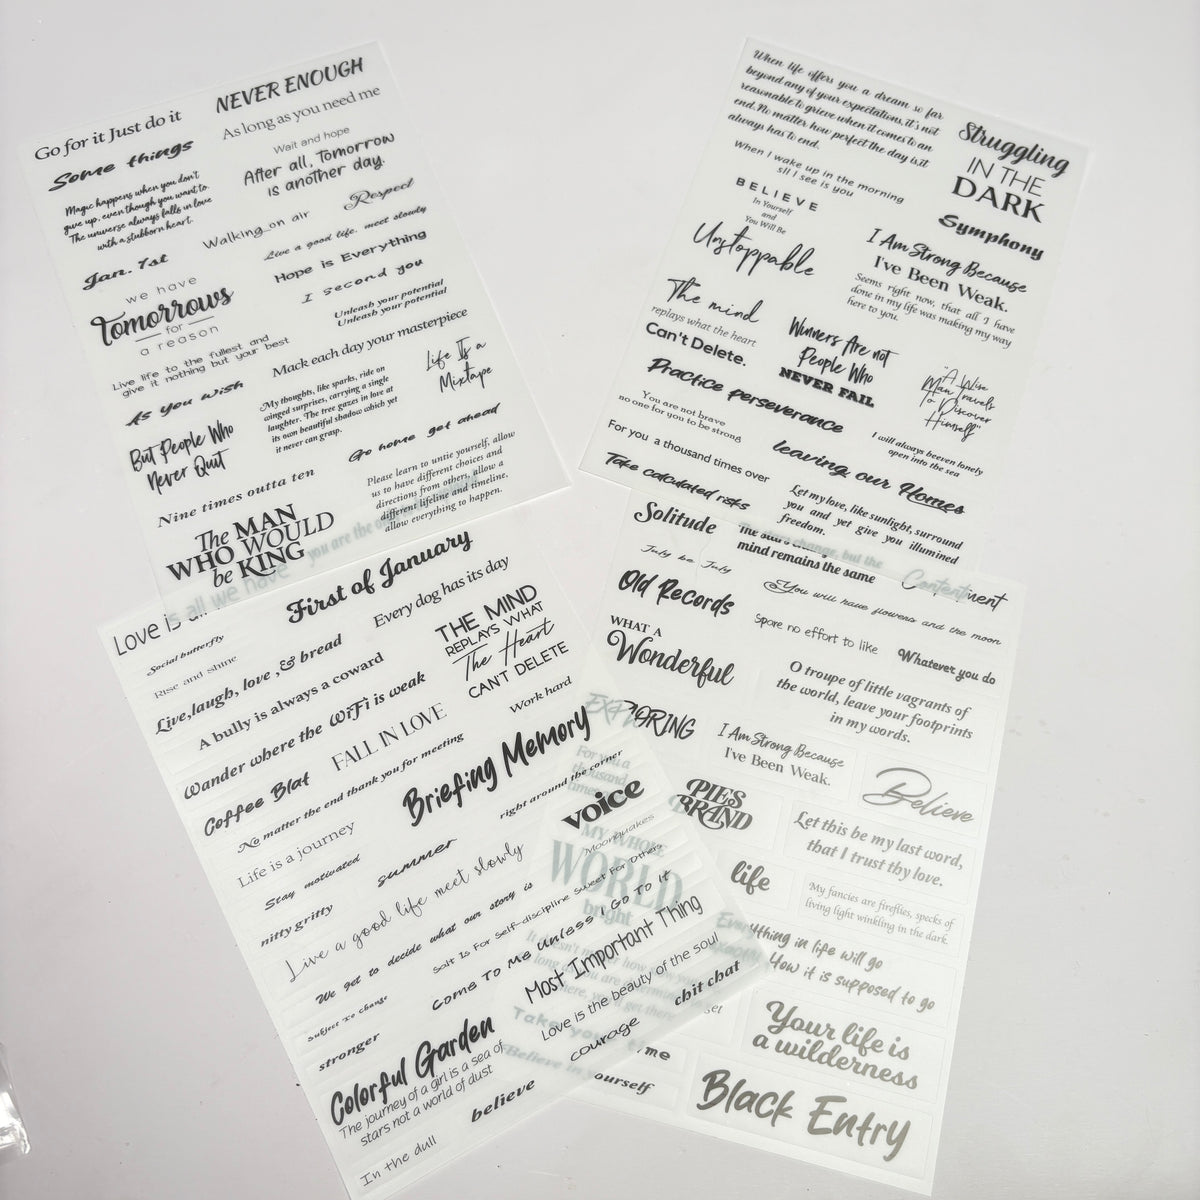 NEVER ENOUGH
Go for it Just do it
As long as you need me
Some things
Wait and hope
After all, Tomorrow
is another day.
Magic happens when you don't
give up, even though you want to.
The universe always falls in love
with a stubborn heart.
Respect
Walking on air
Live a good life. meet slowly
Jan. 1st
Hope is Everything
we have
Tomorrows
for
a reason
I second you
Unleash your potential
Unleash your potential
Live life to the fullest and
give it nothing but your best
Mack each day your masterpiece
As you wish
My thoughts, like sparks, ride on
winged surprises, carrying a single
laughter. The tree gazes in love at
its own beautiful shadow which yet
it never can grasp.
Life Is a
Mixtape
But People Who
Never Quit
Go home get ahead
Nine times outta ten
Please learn to untie yourself, allow
us to have different choices and
directions from others, allow a
different lifeline and timeline,
allow everything to happen.
The MAN
WHO WOULD
be KING
you are the
Love is all we have
When life offers you a dream so far
beyond any of your expectations, it's not
reasonable to grieve when it comes to an
end. No matter how perfect the day is, it
always has to end.
Struggling
IN THE
DARK
When I wake up in the morning
sll I see is you
BELIEVE
In Yourself
and
You Will Be
Unstoppable
Symphony
I Am Strong Because
I've Been Weak.
Seems right now, that all I have
done in my life was making my way
here to you.
The mind
replays what the heart
Can't Delete.
Winners Are not
People Who
NEVER FAIL
"A Wise
Man Travels
To Discover
Himself"
Practice perseverance
You are not brave
no one for you to be strong
I will always beeven lonely
open into the sea
For you a thousand times over
leaving our Homes
Take calculated risks
Let my love, like sunlight, surround
you and yet give you illumined
freedom.
First of January
Every dog has its day
Social butterfly
Rise and shine
Live,laugh, love ,& bread
THE MIND
REPLAYS WHAT
The Heart
CAN'T DELETE
A bully is always a coward
Wander where the WiFi is weak
FALL IN LOVE
Work hard
Coffee Blat
Briefing Memory
No matter the end thank you for meeting
right around the corner
Life is a journey
voice
Stay motivated
summer
Moonquakes
nitty gritty
Live a good life meet slowly
We get to decide what our story is
Salt Is For Self-discipline Sweet For Other
Subject To change
Come To Me Unless I Go To It
stronger
Most Important Thing
Colorful Garden
Love is the beauty of the soul
chit chat
The journey of a girl is a sea of
stars not a world of dust
courage
believe
In the dull
Solitude
change, but the
mind remains the same
Contentment
July be July
You will have flowers and the moon
Old Records
Spore no effort to like
Whatever you do
WHAT A
Wonderful
O troupe of little vagrants of
the world, leave your footprints
in my words.
EXPLORING
I Am Strong Because
I've Been Weak.
Believe
For you a
thousand
times
PIES
BRAND
Let this be my last word,
that I trust thy love.
MY WHOLE
WORLD
bright
life
My fancies are fireflies, specks of
living light winkling in the dark.
Everything in life will go
How it is supposed to go
Your life is
a wilderness
Take your time
Believe in yourself
Black Entry